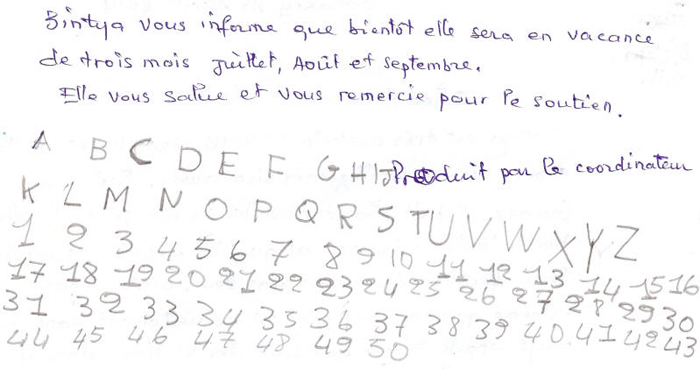 Bintya vous informe que bientôt elle sera en vacance
de trois mois juillet, Août et septembre.
Elle vous salue et vous remercie pour le soutien.
A B C D E F G H I J Produit par le coordinateur
K L M N O P Q R S T U V W X Y Z
1 2 3 4 5 6 7 8 9 10 11 12 13 14 15 16
17 18 19 20 21 22 23 24 25 26 27 28 29 30
31 32 33 34 35 36 37 38 39 40 41 42 43
44 45 46 47 48 49 50